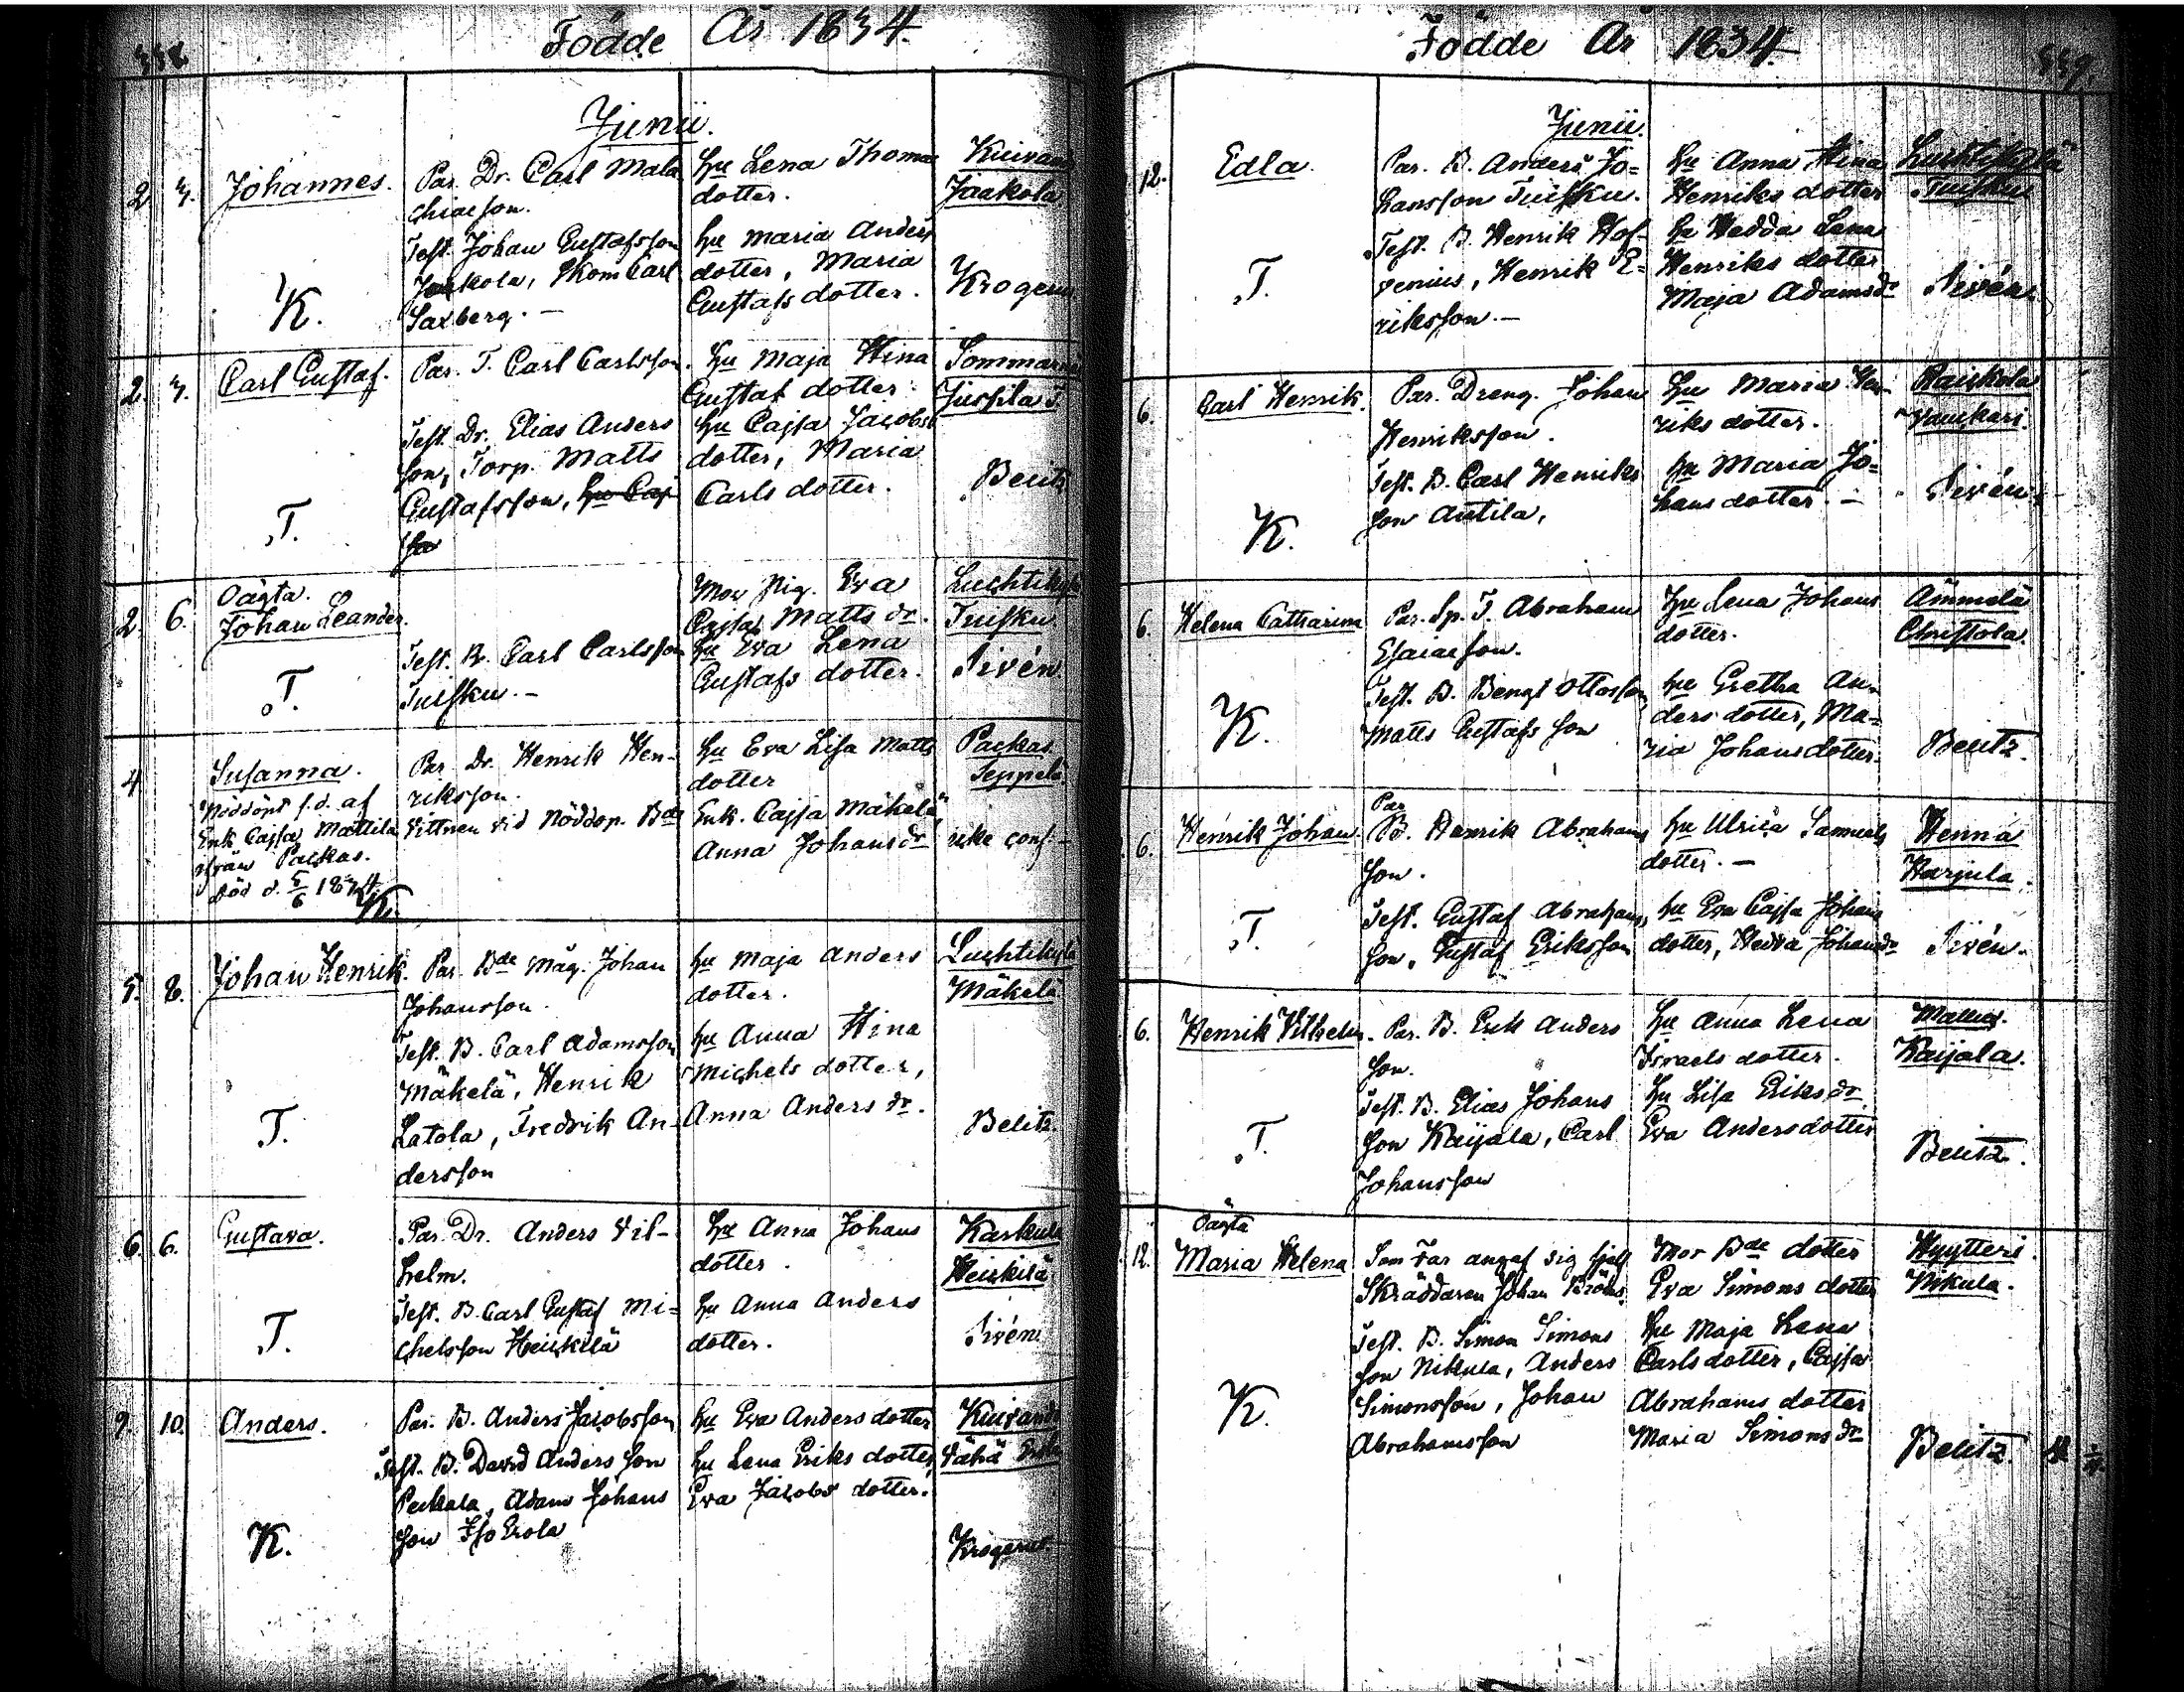 Födde År 1834.
Junii.
2. 3. Johannes.
K.
Par. Dr. Carl Mala
chiæson.
Test. Johan Gustafsson
Jaakola, Skom Carl
Saxberg. –
hu Lena Thomas
dotter.
hu Maria Anders
dotter, Maria
Gustafs dotter.
Kuivans
Jaakola
Krogerus
2. 3. Carl Gustaf.
T.
Par. T. Carl Carlsson.
Test. Dr. Elias Anders
son, Torp. Matts
Gustafsson, hu Caj
sa
hu Maja Stina
Gustaf dotter.
hu Cajsa Jacobs
dotter, Maria
Carls dotter.
Sommarnä
Jussila T.
Belitz
2. 6. Oägta.
Johan Leander.
T.
Test. B. Carl Carlsson
Tuisku. –
Mor Pig. Eva
Cajsa Matts dr.
hu Eva Lena
Gustafs dotter.
Luchtikylä
Tuisku
Sivén
4 Susanna.
Nöddöpt s.d. af
Enk Cajsa Mattila
från Packas.
död d. 5/6 1834.
K.
Par. Dr. Henrik Hen-
riksson.
Vittnen vid Nöddop. Bde
hu Eva Lisa Matts
dotter
Enk. Cajsa Mäkelä,
Anna Johans dr
Packas.
Seppelä
icke conf. –
5. 8. Johan Henrik.
T.
Par. Bde Måg. Johan
Johansson.
Test. B. Carl Adamsson
Mäkelä, Henrik
Latola, Fredrik An-
dersson
hu Maja Anders
dotter.
hu Anna Stina
Michels dotter,
Anna Anders dr.
Luchtikylä
Mäkelä
Belitz
6. 6. Gustava.
T.
Par. Dr. Anders Vil-
helm.
Test. B. Carl Gustaf Mi=
chelsson Heickilä
hu Anna Johans
dotter.
hu Anna Anders
dotter.
Kaskula
Heickilä
Sivén
9. 10. Anders.
K.
Par. B. Anders Jacobsson
Test. B. David Anders son
Peckala, Adam Johans
son Iso Erola
hu Eva Anders dotter
hu Lena Eriks dotter,
Eva Jacobs dotter.
Kuivans
Vähä Erola
Krogerus.
Födde År 1834.
339.
Junii.
12. Edla.
T.
Par. B. Anders Jo=
hansson Tuisku.
Test. B. Henrik Hof-
renius, Henrik E=
riksson. –
hu Anna Stina
Henriks dotter
hu Hedda Lena
Henriks dotter
Maja Adamsdr
Luchtikylä
Tuisku
Sivén.
6. Carl Henrik.
K.
Par. Dreng. Johan
Henriksson.
Test. B. Carl Henriks
son Antila,
hu Maria Hen-
riks dotter.
hu Maria Jo=
hans dotter. –
Raiskola
Sivén
6. Helena Catharina
K.
Par. Sp. T. Abraham
Esaiæson.
Test. B. Bengt Ottosson,
Matts Gustafs son
hu Lena Johans
dotter.
hu Gretha An-
ders dotter, Ma=
ria Johansdotter.
Ämmälä
Christola.
Belitz.
6. Henrik Johan.
T.
Par
B. Henrik Abrahams
son.
Test. Gustaf Abrahams
son, Gustaf Eriksson
hu Ulrica Samuels
dotter. –
hu Eva Cajsa Johans
dotter, Hedva Johansdr
Henna
Harjula.
Sivén.
6. Henrik Vilhelm.
T.
Par. B. Erik Anders
son.
Test. B. Elias Johans
son Kaijala, Carl
Johansson
hu Anna Lena
Israels dotter.
hu Lisa Eriks dr.
Eva Andersdotter
Mattas.
Kaijala.
Belitz.
12. Oägta
Maria Helena
K.
Som Far angaf sig sjelf
Skräddaren Johan
Test. B. Simon Simons
son Nikula, Anders
Simonsson, Johan
Abrahamsson
Mor Bde dotter
Eva Simons dotter
hu Maja Lena
Carls dotter, Cajsa
Abrahams dotter
Maria Simons dr
Hyytteri.
Nikula.
Belitz.